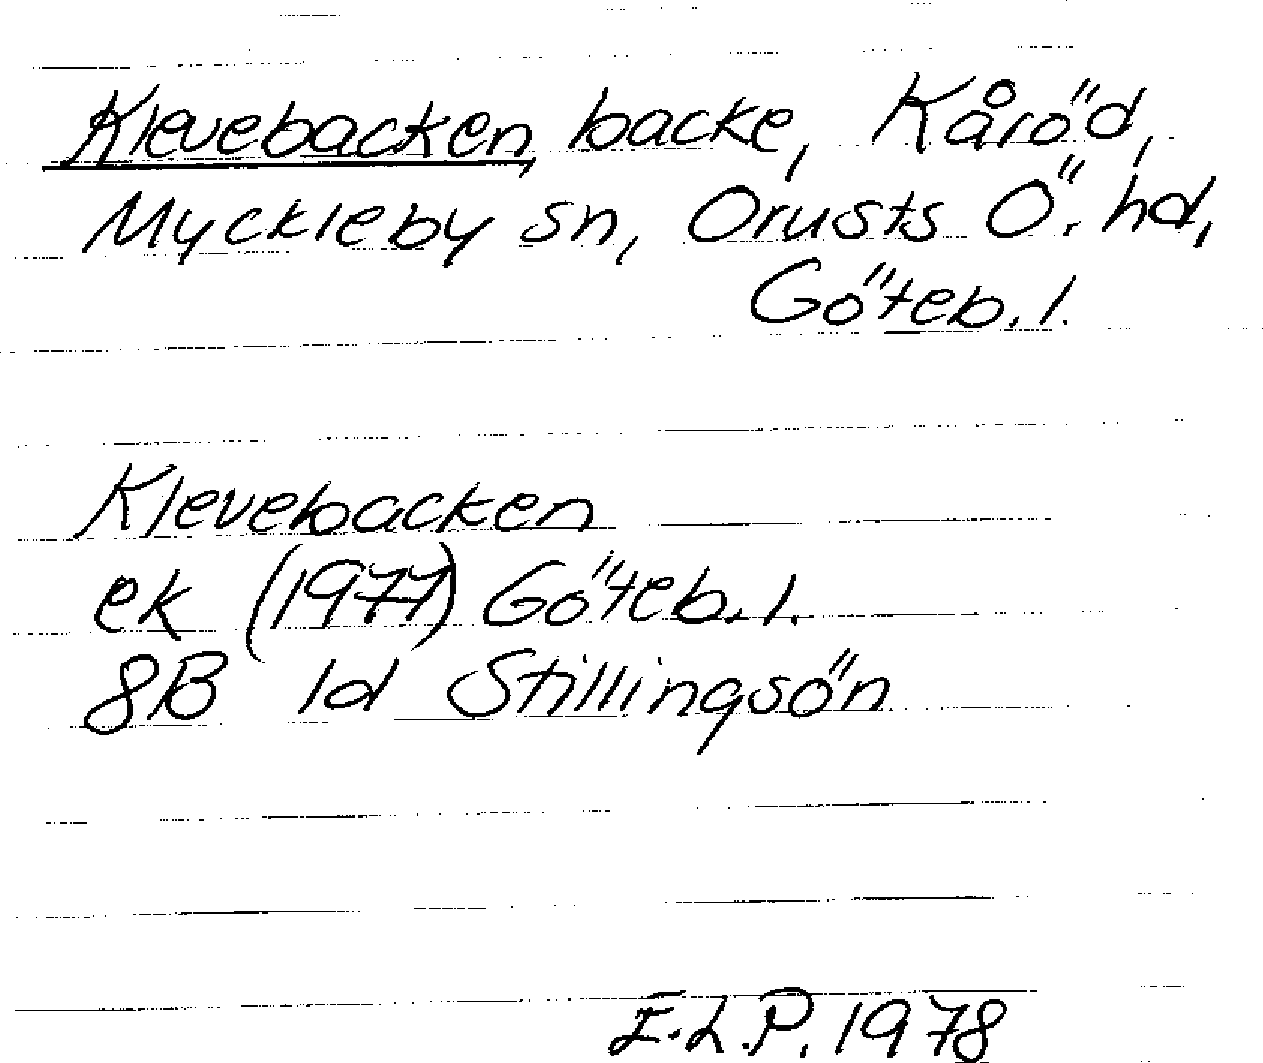 Klevebacken, backe, Kåröd,
Myckleby sn, Orusts Ö. hd,
Göteb. l.
Klevebacken
ek (1977) Göteb. l.
8B 1d Stillingsön
E.L.P. 1978